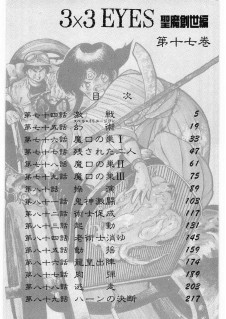 3×3 EYES 聖魔創世編
第十七巻
目次
第七十四話 激戦 5
第七十五話 幻術 19
第七十六話 魔口の巣Ⅰ 33
第七十七話 残された二人 47
第七十八話 魔口の巣Ⅱ 61
第七十九話 魔口の巣Ⅲ 75
第八十話 89
第八十一話 鬼神激闘 103
第八十二話 術士促成 117
第八十三話 起動 131
第八十四話 老術士消ゆ 145
第八十五話 動 159
第八十六話 174
第八十七話 胸弾 189
第八十八話 逆走 203
第八十九話 ハーンの決断 217